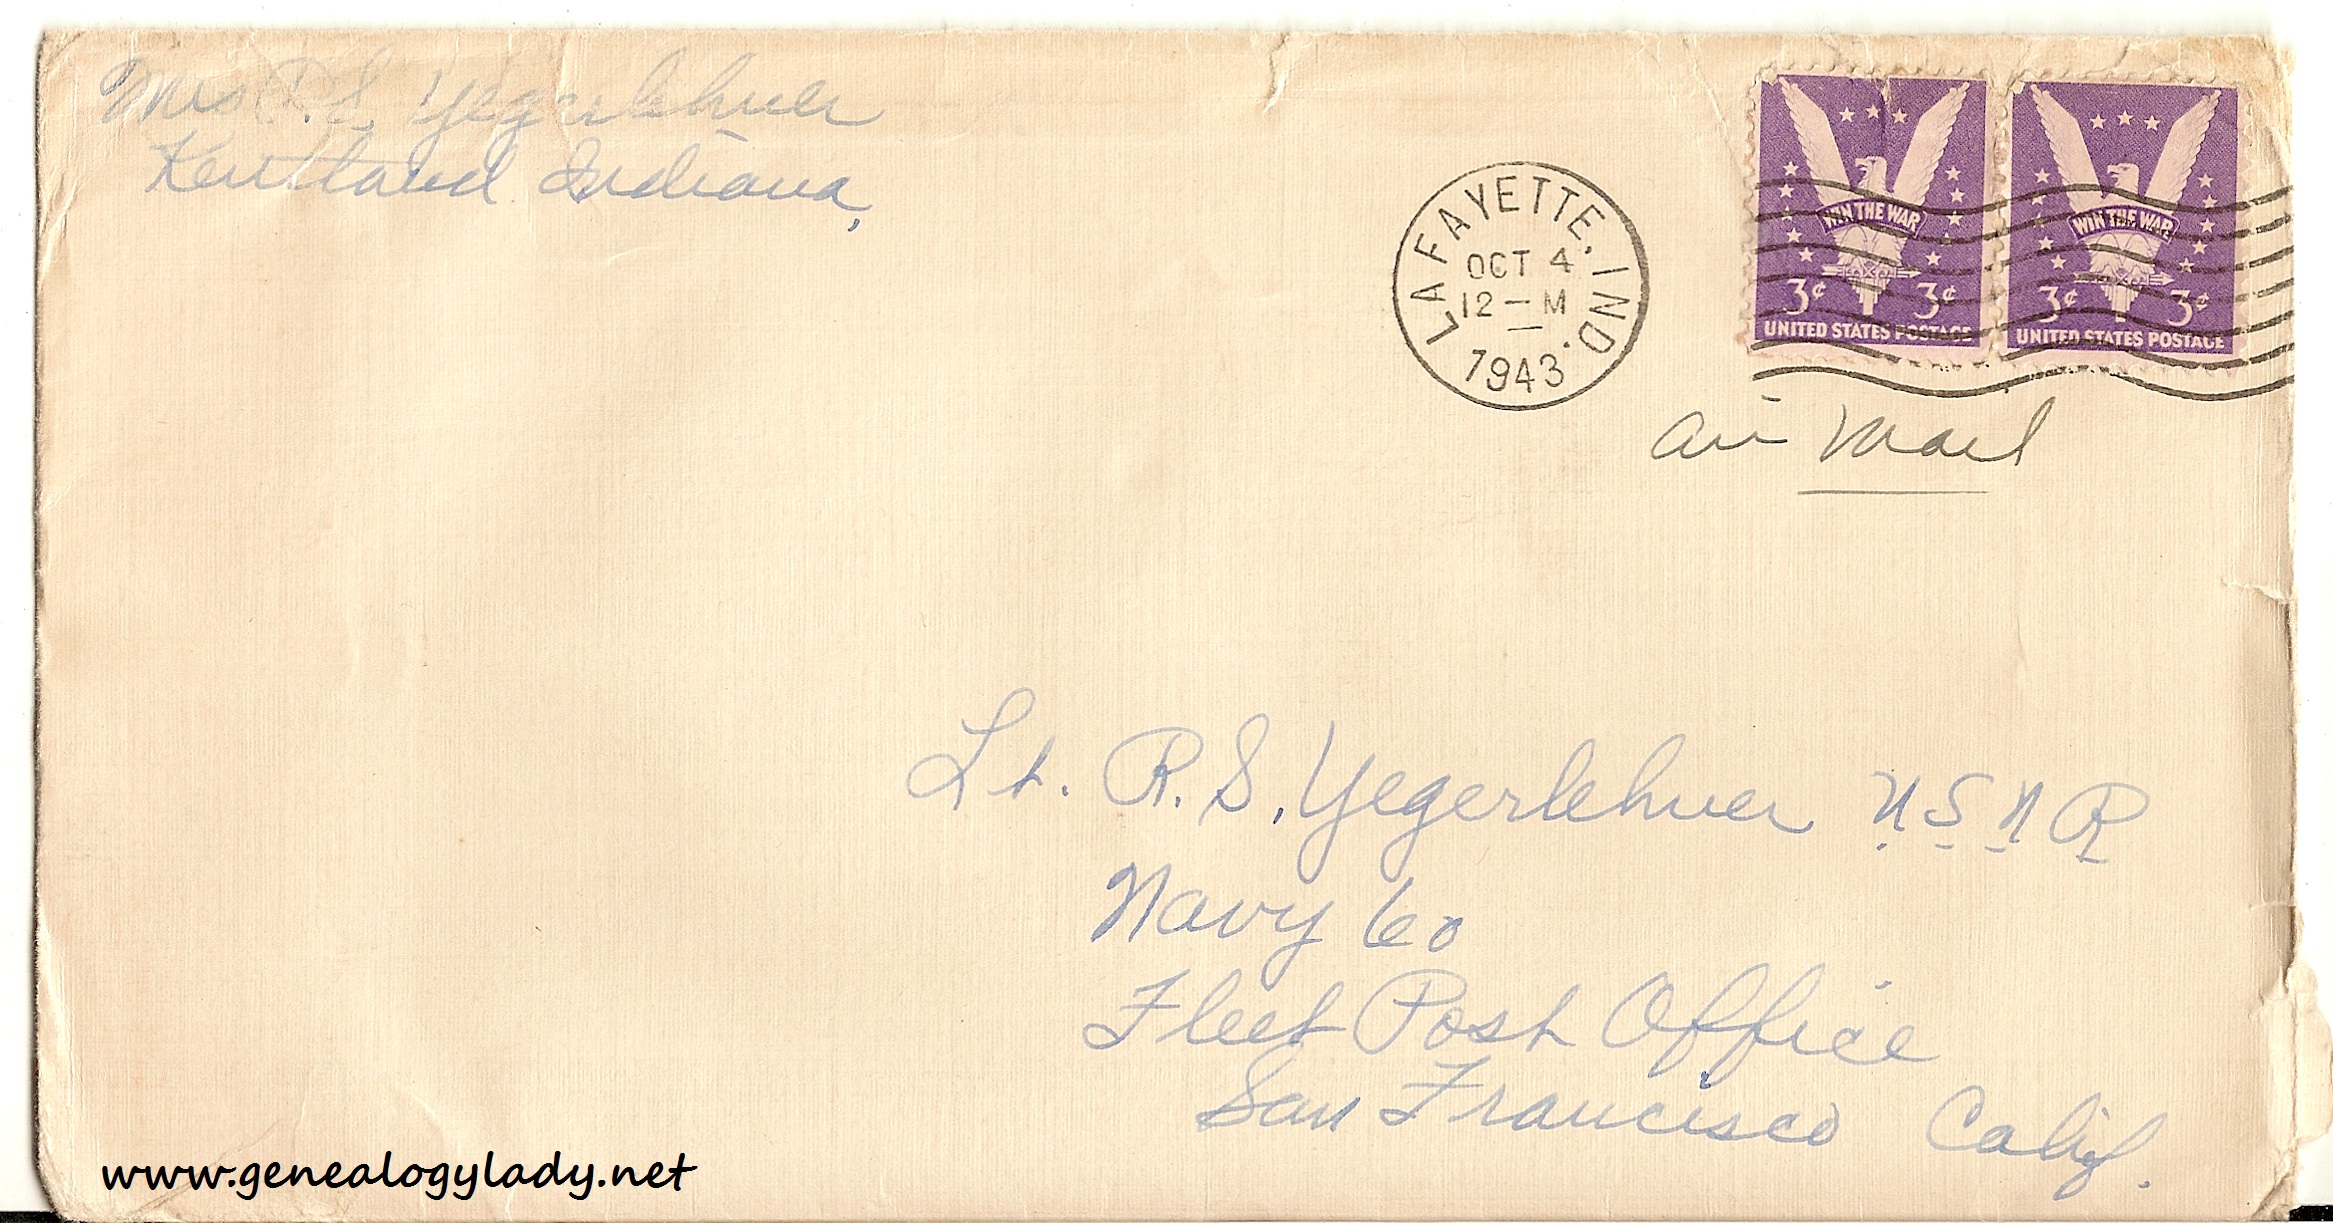 Mrs R.S. Yegerlehner
Kentland Indiana,
LAFAYETTE, IND.
OCT 4
12 — M
1943
WIN THE WAR
3¢ 3¢
UNITED STATES POSTAGE
WIN THE WAR
3¢ 3¢
UNITED STATES POSTAGE
Air Mail
Lt. R.S. Yegerlehner U.S.N.R
Navy 60
Fleet Post Office
San Francisco Calif.
www.genealogylady.net